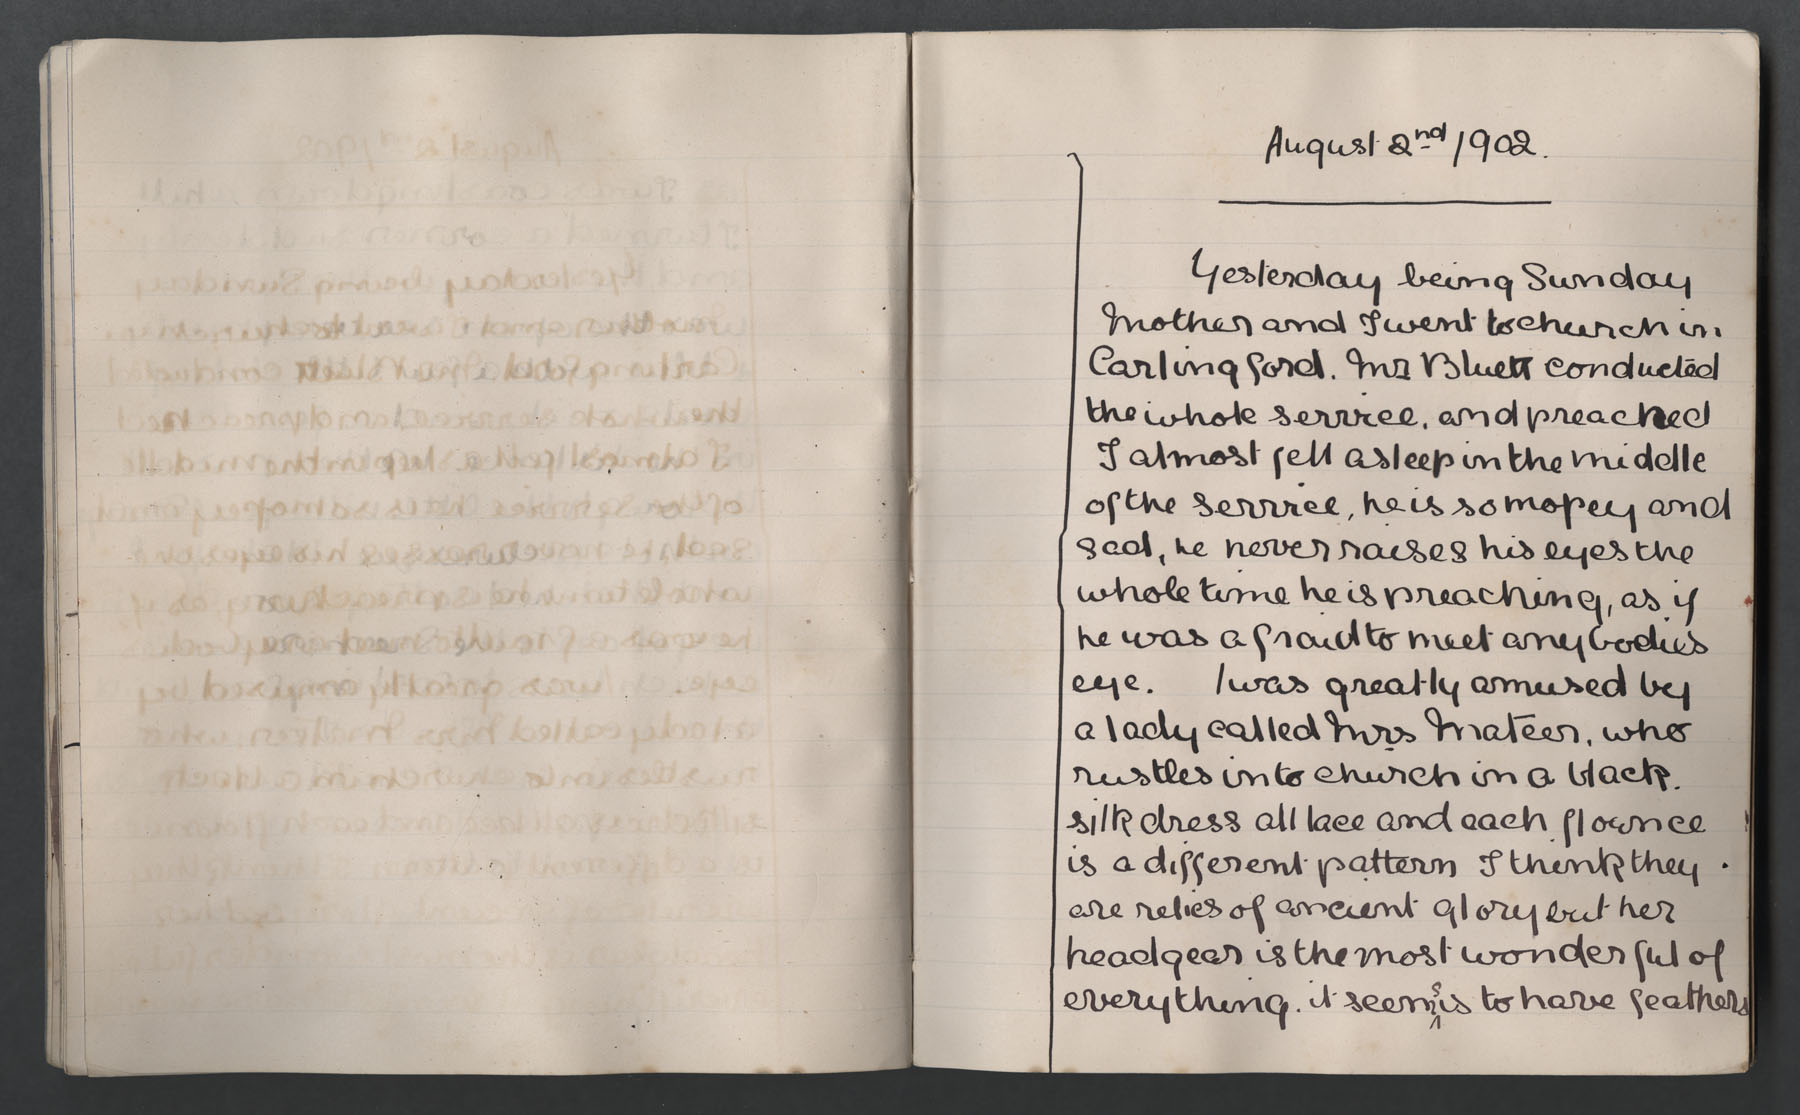 August 2nd 1902.
Yesterday being Sunday
Mother and I went to church in
Carlingford. Mr Bluett conducted
the whole service, and preached
I almost fell asleep in the middle
of the service, he is so mopey and
sad, he never raises his eyes the
whole time he is preaching, as if
he was afraid to meet anybodies
eye. I was greatly amused by
a lady called Mrs Mateer, who
rustles into church in a black
silk dress all lace and each flounce
is a different pattern I think they
are relics of ancient glory but her
headgear is the most wonderful of
everything. it seems to have feathers